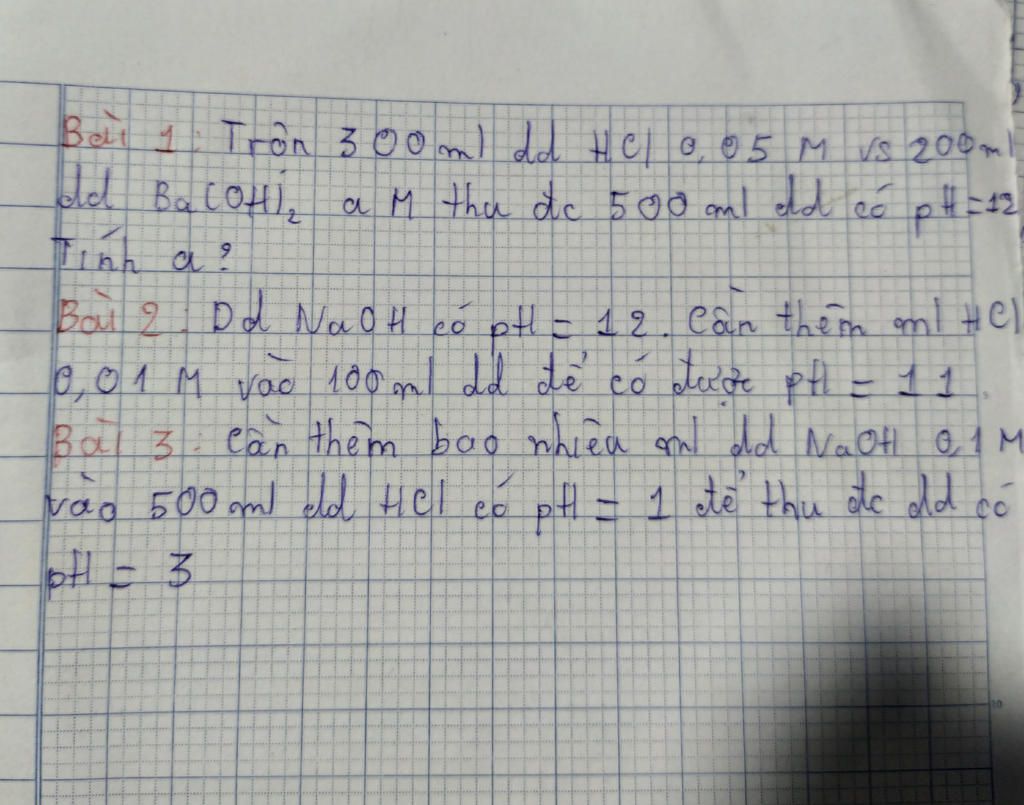 Bài 1: Trộn 300ml dd HCl 0,05 M vs 200ml
dd Ba(OH)₂ a M thu đc 500 ml dd có pH=12
Tính a?
Bài 2: Dd NaOH có pH = 12. Cần thêm ml HCl
0,01 M vào 100ml dd để có được pH = 11.
Bài 3: Cần thêm bao nhiêu ml dd NaOH 0,1 M
vào 500ml dd HCl có pH = 1 để thu đc dd có
pH = 3